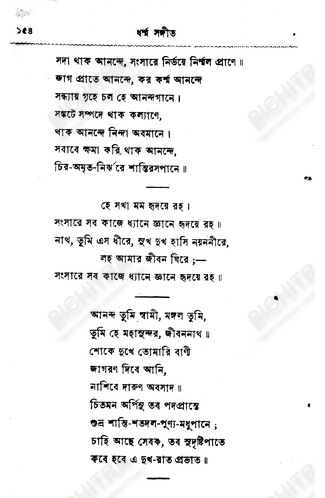 ১৫৪ ধর্ম্ম সঙ্গীত।
সদা থাক আনন্দে, সংসারে নির্ভয়ে নির্ম্মল প্রাণে॥
জাগ প্রাতে আনন্দে, কর কর্ম্ম আনন্দে
সন্ধ্যায় গৃহে চল হে আনন্দগানে।
সঙ্কটে সম্পদে থাক কল্যাণে,
থাক আনন্দে নিন্দা অবমানে।
সবারে ক্ষমা করি থাক আনন্দে,
চির-অমৃত-নির্ঝরে শান্তিরসপানে॥
হে সখা মম হৃদয়ে রহ।
সংসারে সব কাজে ধ্যানে জ্ঞানে হৃদয়ে রহ॥
নাথ, তুমি এস ধীরে, সুখ দুখ হাসি নয়ননীরে,
লহ আমার জীবন ঘিরে;—
সংসারে সব কাজে ধ্যানে জ্ঞানে হৃদয়ে রহ॥
আনন্দ তুমি স্বামী, মঙ্গল তুমি,
তুমি হে মহাসুন্দর, জীবননাথ॥
শোকে দুখে তোমারি বাণী
জাগরণ দিবে আনি,
নাশিবে দারুণ অবসাদ॥
চিতমন অর্পিনু তব পদপ্রান্তে
শুভ্র শান্তি-শতদল-পুণ্য-মধুপানে;
চাহি আছে সেবক, তব সুদৃষ্টিপাতে
কবে হবে এ দুখ-রাত প্রভাত॥
BIOHITS